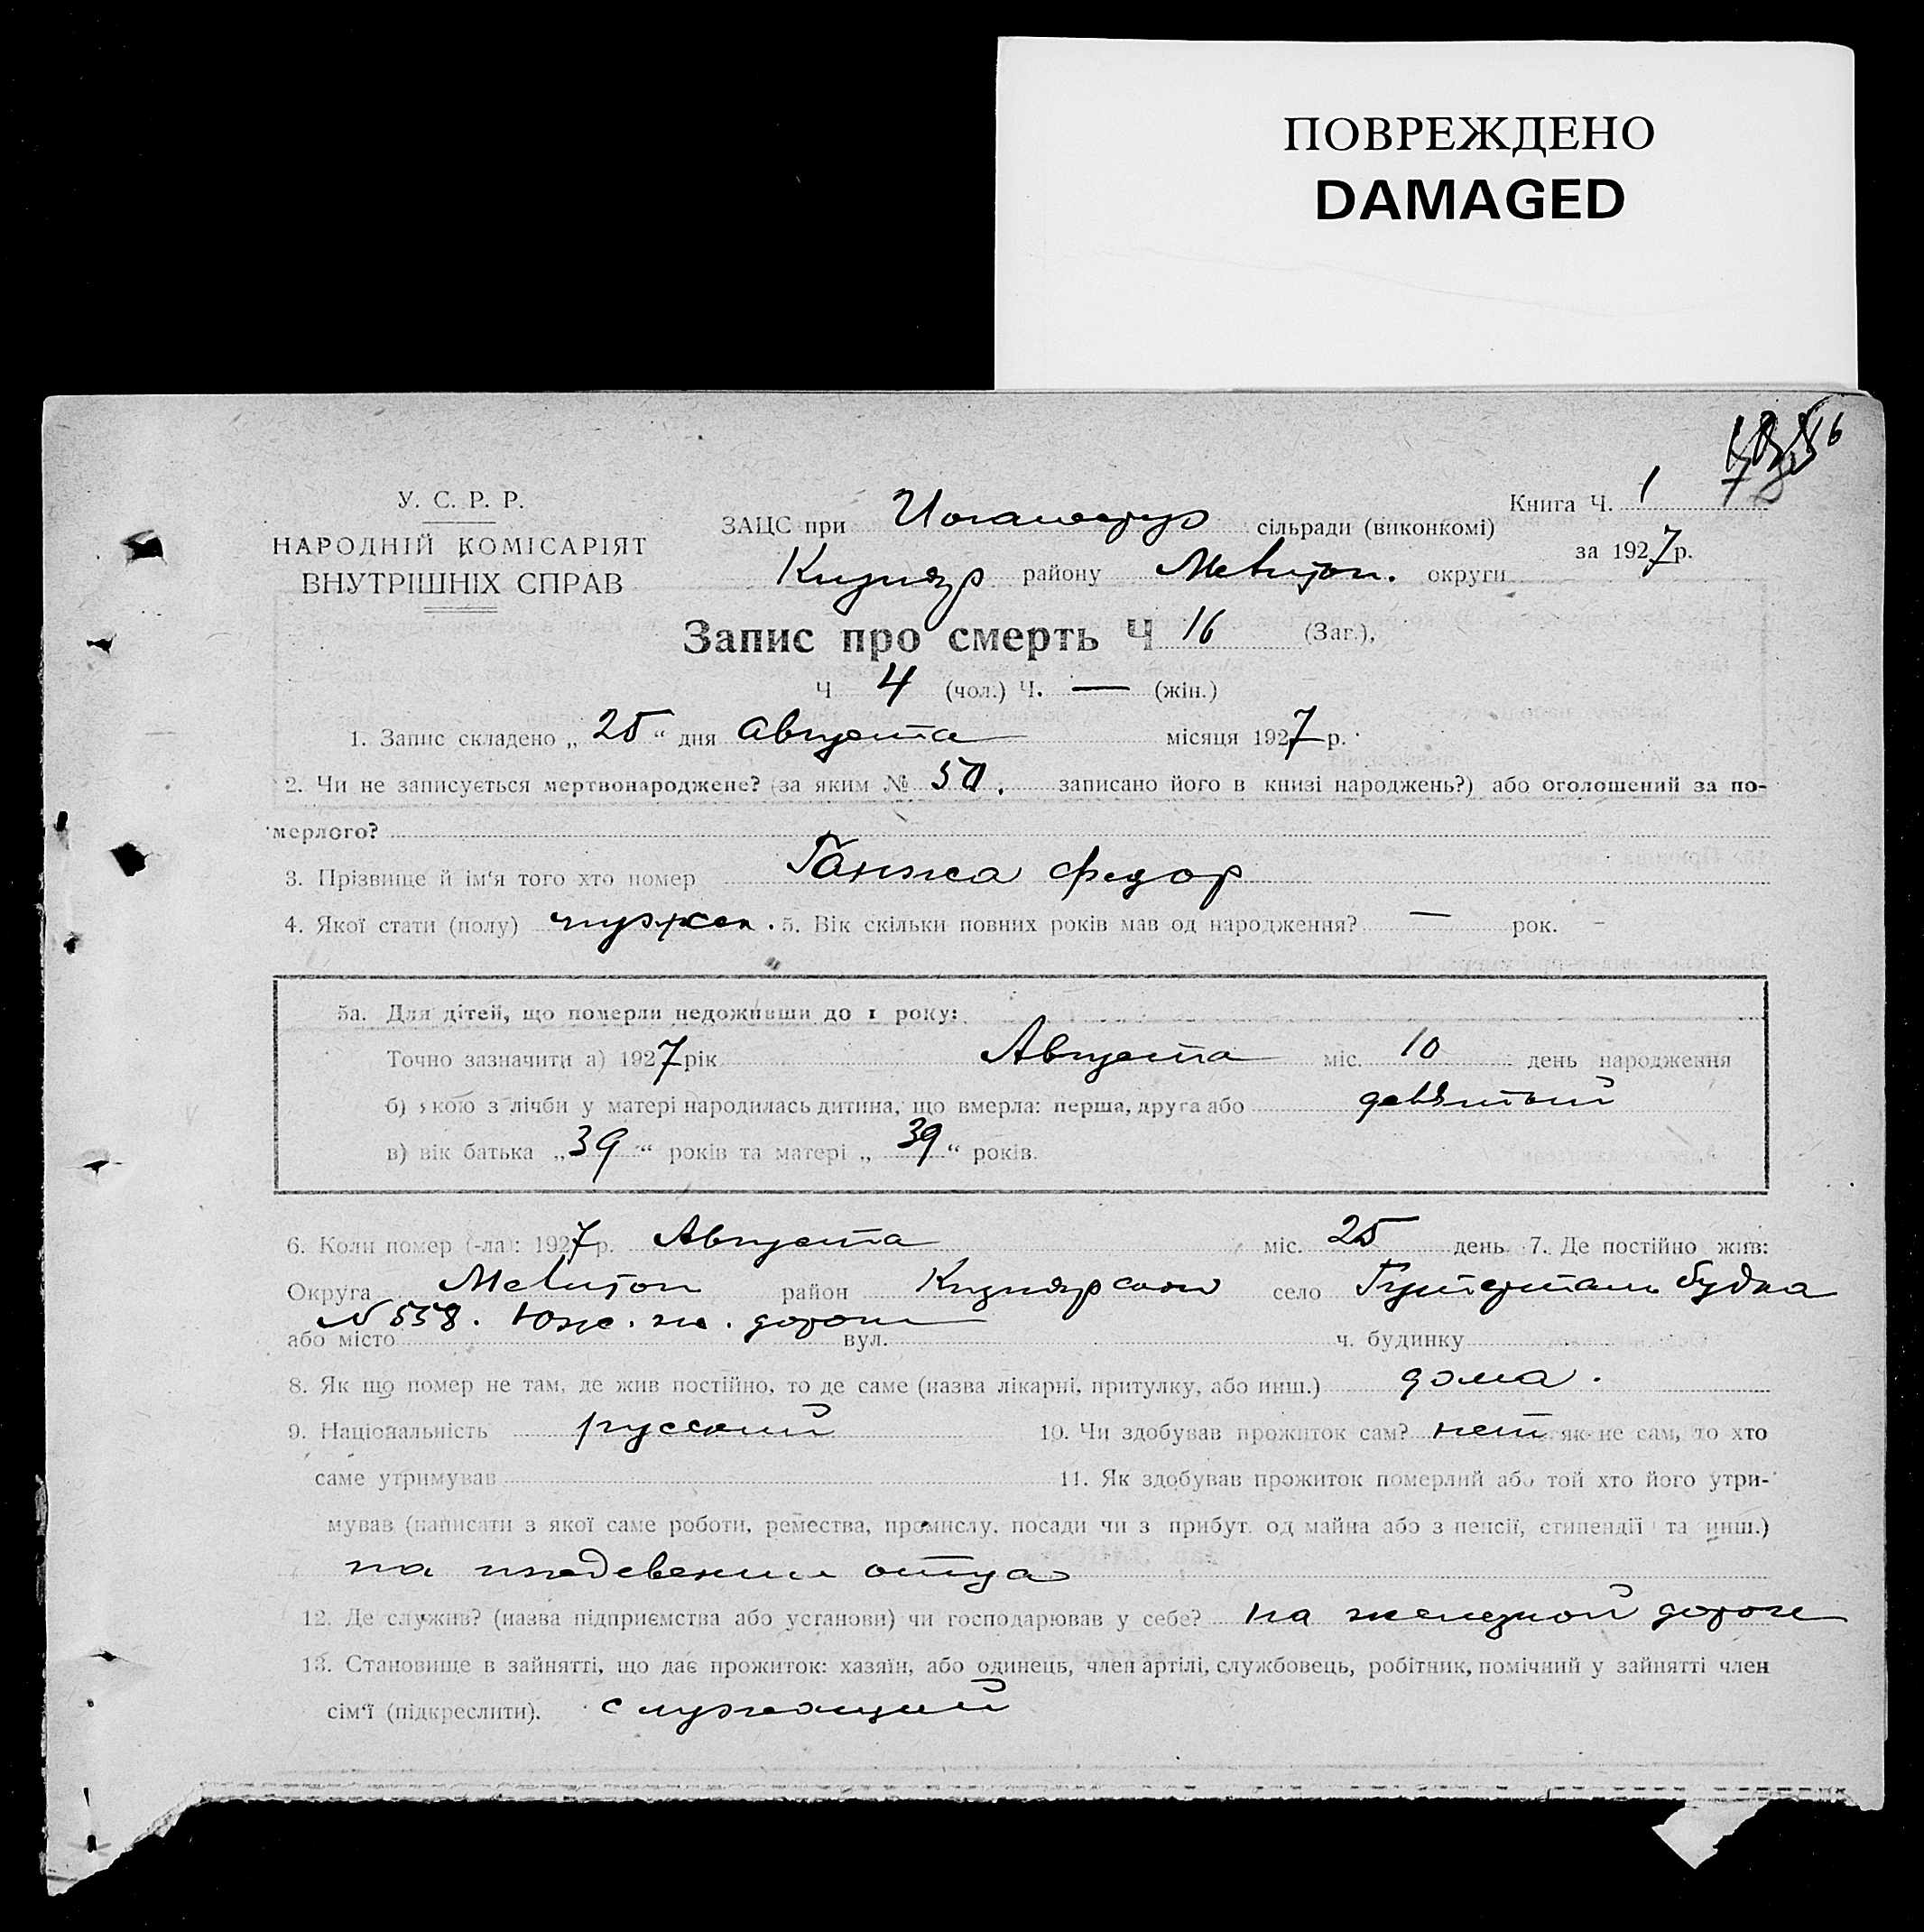 ПОВРЕЖДЕНО
DAMAGED
У. С. Р. Р.
НАРОДНІЙ КОМІСАРІЯТ
ВНУТРІШНІХ СПРАВ
Книга Ч. 1
за 1927 р.
ЗАЦС при сільради (виконкомі)
Кизияр району Мелитоп. округи
Запис про смерть Ч 16 (Заг.),
Ч 4 (чол.) Ч. — (жін.)
1. Запис складено „ 25 “ дня Августа місяця 1927 р.
2. Чи не записується мертвонароджене? (за яким № 50. записано його в книзі народжень?) або оголошений за по-
мерлого?
3. Прізвище й ім‘я того хто помер Ганжа Федор
4. Якої стати (полу) мужск. 5. Вік скільки повних років мав од народження? — рок. –
5а. Для дітей, що померли недоживши до 1 року:
Точно зазначити а) 1927 рік Августа міс. 10 день народження
б) якою з лічби у матері народилась дитина, що вмерла: перша, друга або девятый
в) вік батька „ 39 “ років та матері „ 39 “ років.
6. Коли помер (-ла): 1927 р. Августа міс. 25 день 7. Де постійно жив:
Округа Мелитоп район Кизиярском село будка
№ 558. Юж. ж. дороги
або місто вул. ч. будинку
8. Як що помер не там, де жив постійно, то де саме (назва лікарні, притулку, або инш.) дома.
9. Національність русский 10. Чи здобував прожиток сам? нет як не сам, то хто
саме утримував 11. Як здобував прожиток померлий або той хто його утри-
мував (написати з якої саме роботи, ремества, промислу, посади чи з прибут. од майна або з пенсії, стипендії та инш.)
на иждевении отца
12. Де служив? (назва підприємства або установи) чи господарював у себе? на железной дороге
13. Становище в зайнятті, що дає прожиток: хазяїн, або одинець, член артілі, службовець, робітник, помічний у зайнятті член
сім‘ї (підкреслити). служащий